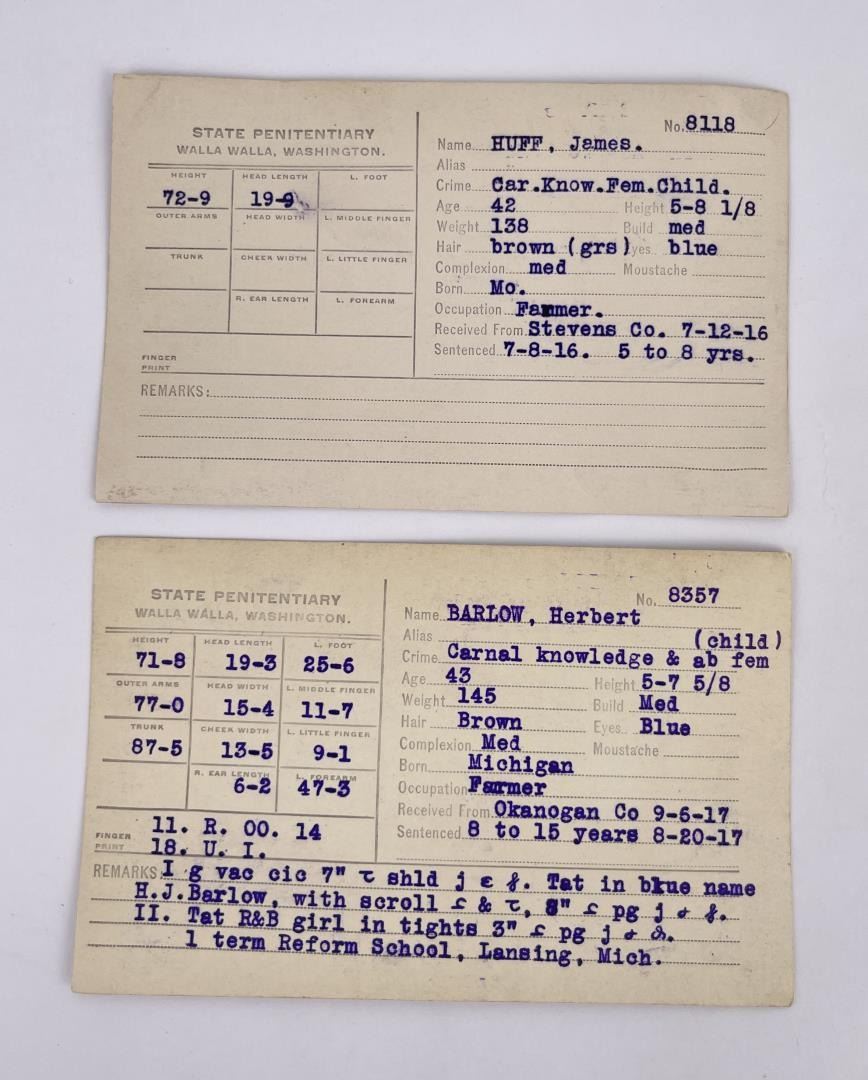 STATE PENITENTIARY
WALLA WALLA, WASHINGTON.
HEIGHT HEAD LENGTH L. FOOT
72-9 19-9
OUTER ARMS HEAD WIDTH L. MIDDLE FINGER
TRUNK CHEEK WIDTH L. LITTLE FINGER
R. EAR LENGTH L. FOREARM
FINGER
PRINT
No. 8118
Name HUFF, James.
Alias
Crime Car.Know.Fem.Child.
Age 42 Height 5-8 1/8
Weight 138 Build med
Hair brown (grs) yes blue
Complexion med Moustache
Born Mo.
Occupation Farmer.
Received From Stevens Co. 7-12-16
Sentenced 7-8-16. 5 to 8 yrs.
REMARKS:
STATE PENITENTIARY
WALLA WALLA, WASHINGTON.
HEIGHT HEAD LENGTH L. FOOT
71-8 19-3 25-6
OUTER ARMS HEAD WIDTH L. MIDDLE FINGER
77-0 15-4 11-7
TRUNK CHEEK WIDTH L. LITTLE FINGER
87-5 13-5 9-1
R. EAR LENGTH L. FOREARM
6-2 47-3
FINGER 11. R. OO. 14
PRINT 18. U. I.
No. 8357
Name BARLOW, Herbert
Alias (child)
Crime Carnal knowledge & ab fem
Age 43 Height 5-7 5/8
Weight 145 Build Med
Hair Brown Eyes Blue
Complexion Med Moustache
Born Michigan
Occupation Farmer
Received From Okanogan Co 9-6-17
Sentenced 8 to 15 years 8-20-17
REMARKS I g vac cic 7" shld j Tat in blue name
H.J.Barlow, with scroll & , 8" pg j
II. Tat R&B girl in tights 3" pg j
1 term Reform School, Lansing, Mich.